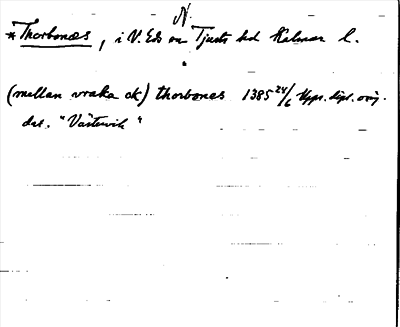 N.
*Thorbonæs, i V. Eds sn Tjusts hd Kalmar l.
(mellan vraka ok) thorbonæs 1385 24/6 Upps. dipl. orig.
dat. "Västervik"